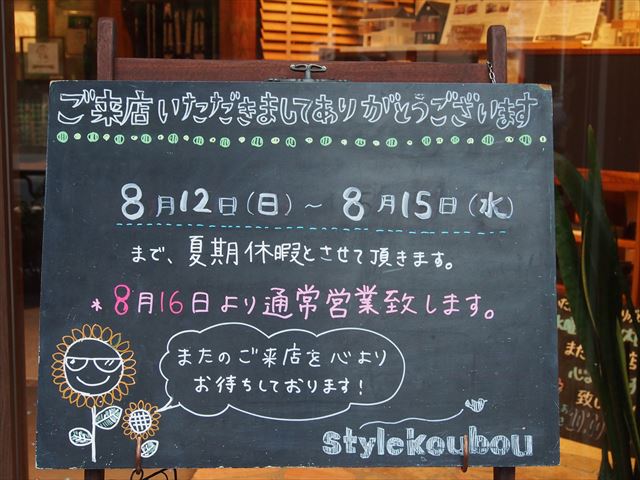 ご来店いただきましてありがとうございます
8月12日(日)~8月15日(水)
まで、夏期休暇とさせて頂きます。
*8月16日より通常営業致します。
またのご来店を心より
お待ちしております!
stylekoubou